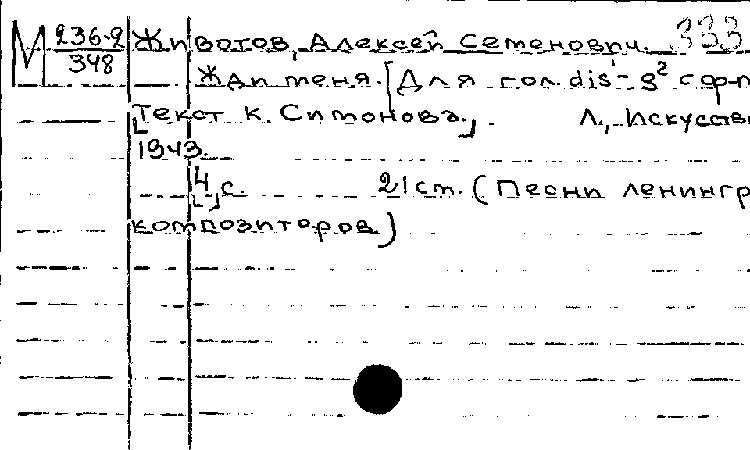 М 236-2/348 Животов, Алексей Семенович. 333
Жди меня. [Для гол. dis¹-g² с ф-п
[Текст К. Симонова.] . Л., Искусств
1943.
[4] с. 21 см. (Песни ленингр
композиторов)